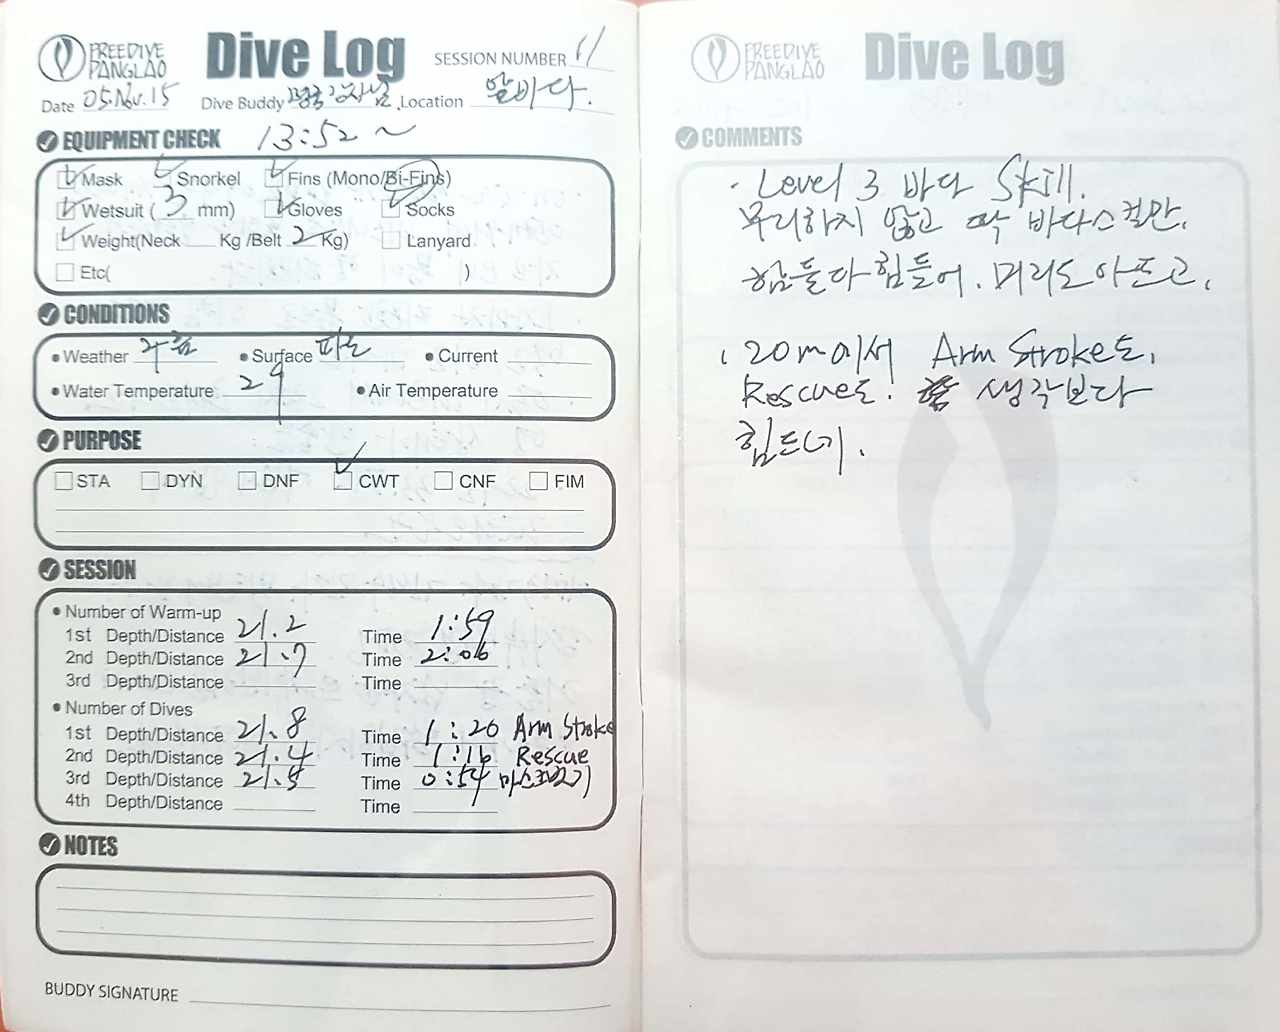 FREEDIVE PANGLAO
Dive Log
SESSION NUMBER 11
Date 05.Nov.15 Dive Buddy Location 앞바다.
EQUIPMENT CHECK 13:52 ~
Mask Snorkel Fins (Mono/Bi-Fins)
Wetsuit ( 3 mm) Gloves Socks
Weight(Neck Kg /Belt 2 Kg) Lanyard
Etc( )
CONDITIONS
Weather 구름 Surface 파도 Current
Water Temperature 29 Air Temperature
PURPOSE
STA DYN DNF CWT CNF FIM
SESSION
Number of Warm-up
1st Depth/Distance 21.2 Time 1:59
2nd Depth/Distance 21.7 Time 2:06
3rd Depth/Distance Time
Number of Dives
1st Depth/Distance 21.8 Time 1:20 Arm Stroke
2nd Depth/Distance 21.4 Time 1:16 Rescue
3rd Depth/Distance 21.5 Time 0:54 마스크벗기
4th Depth/Distance Time
NOTES
BUDDY SIGNATURE
FREEDIVE PANGLAO
Dive Log
COMMENTS
· Level 3 바다 Skill.
무리하지 않고 딱 바다스킬만.
힘들다 힘들어. 머리도 아프고.
· 20m에서 Arm Stroke도,
Rescue도! 생각보다
힘드네.